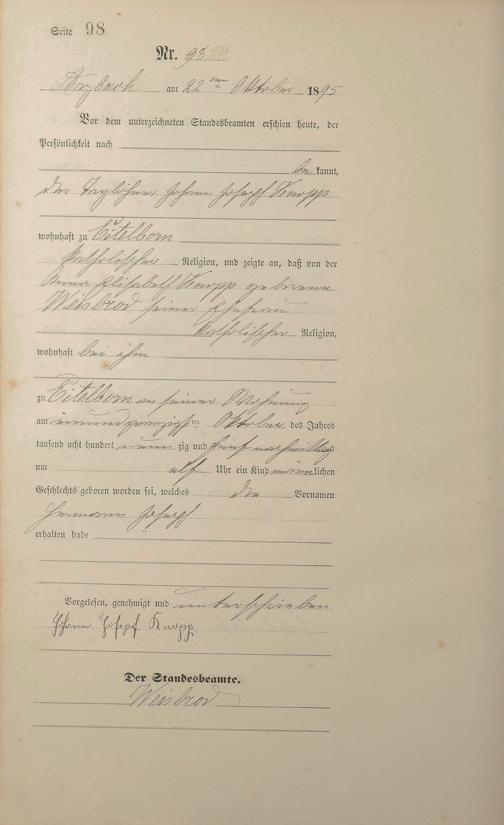 Seite 98
Nr. 98
Arzbach am 22ten Oktober 1895
Vor dem unterzeichneten Standesbeamten erschien heute, der
Persönlichkeit nach
be kannt,
der Taglöhner Johann Joseph Knopp
wohnhaft zu Eitelborn
katholischer Religion, und zeigte an, daß von der
Anna Elisabeth Knopp geborene
Weisbrod seiner Ehefrau
katholischer Religion,
wohnhaft bei ihm
zu Eitelborn in seiner Wohnung
am einundzwanzigsten Oktober des Jahres
tausend acht hundert neun zig und fünf vormittags
um elf Uhr ein Kind männlichen
Geschlechts geboren worden sei, welches die Vornamen
Hermann Joseph
erhalten habe
Vorgelesen, genehmigt und unterschrieben
Johann Josepf Knopp
Der Standesbeamte.
Weisbrod